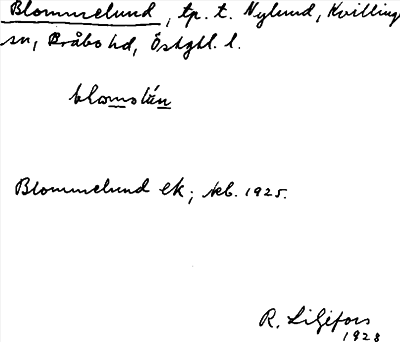 Blommelund, tp. t. Nylund, Kvillinge
sn, Bråbo hd, Östgtl. l.
Blommelund ek; Jeb. 1925.
R. Liljefors
1928